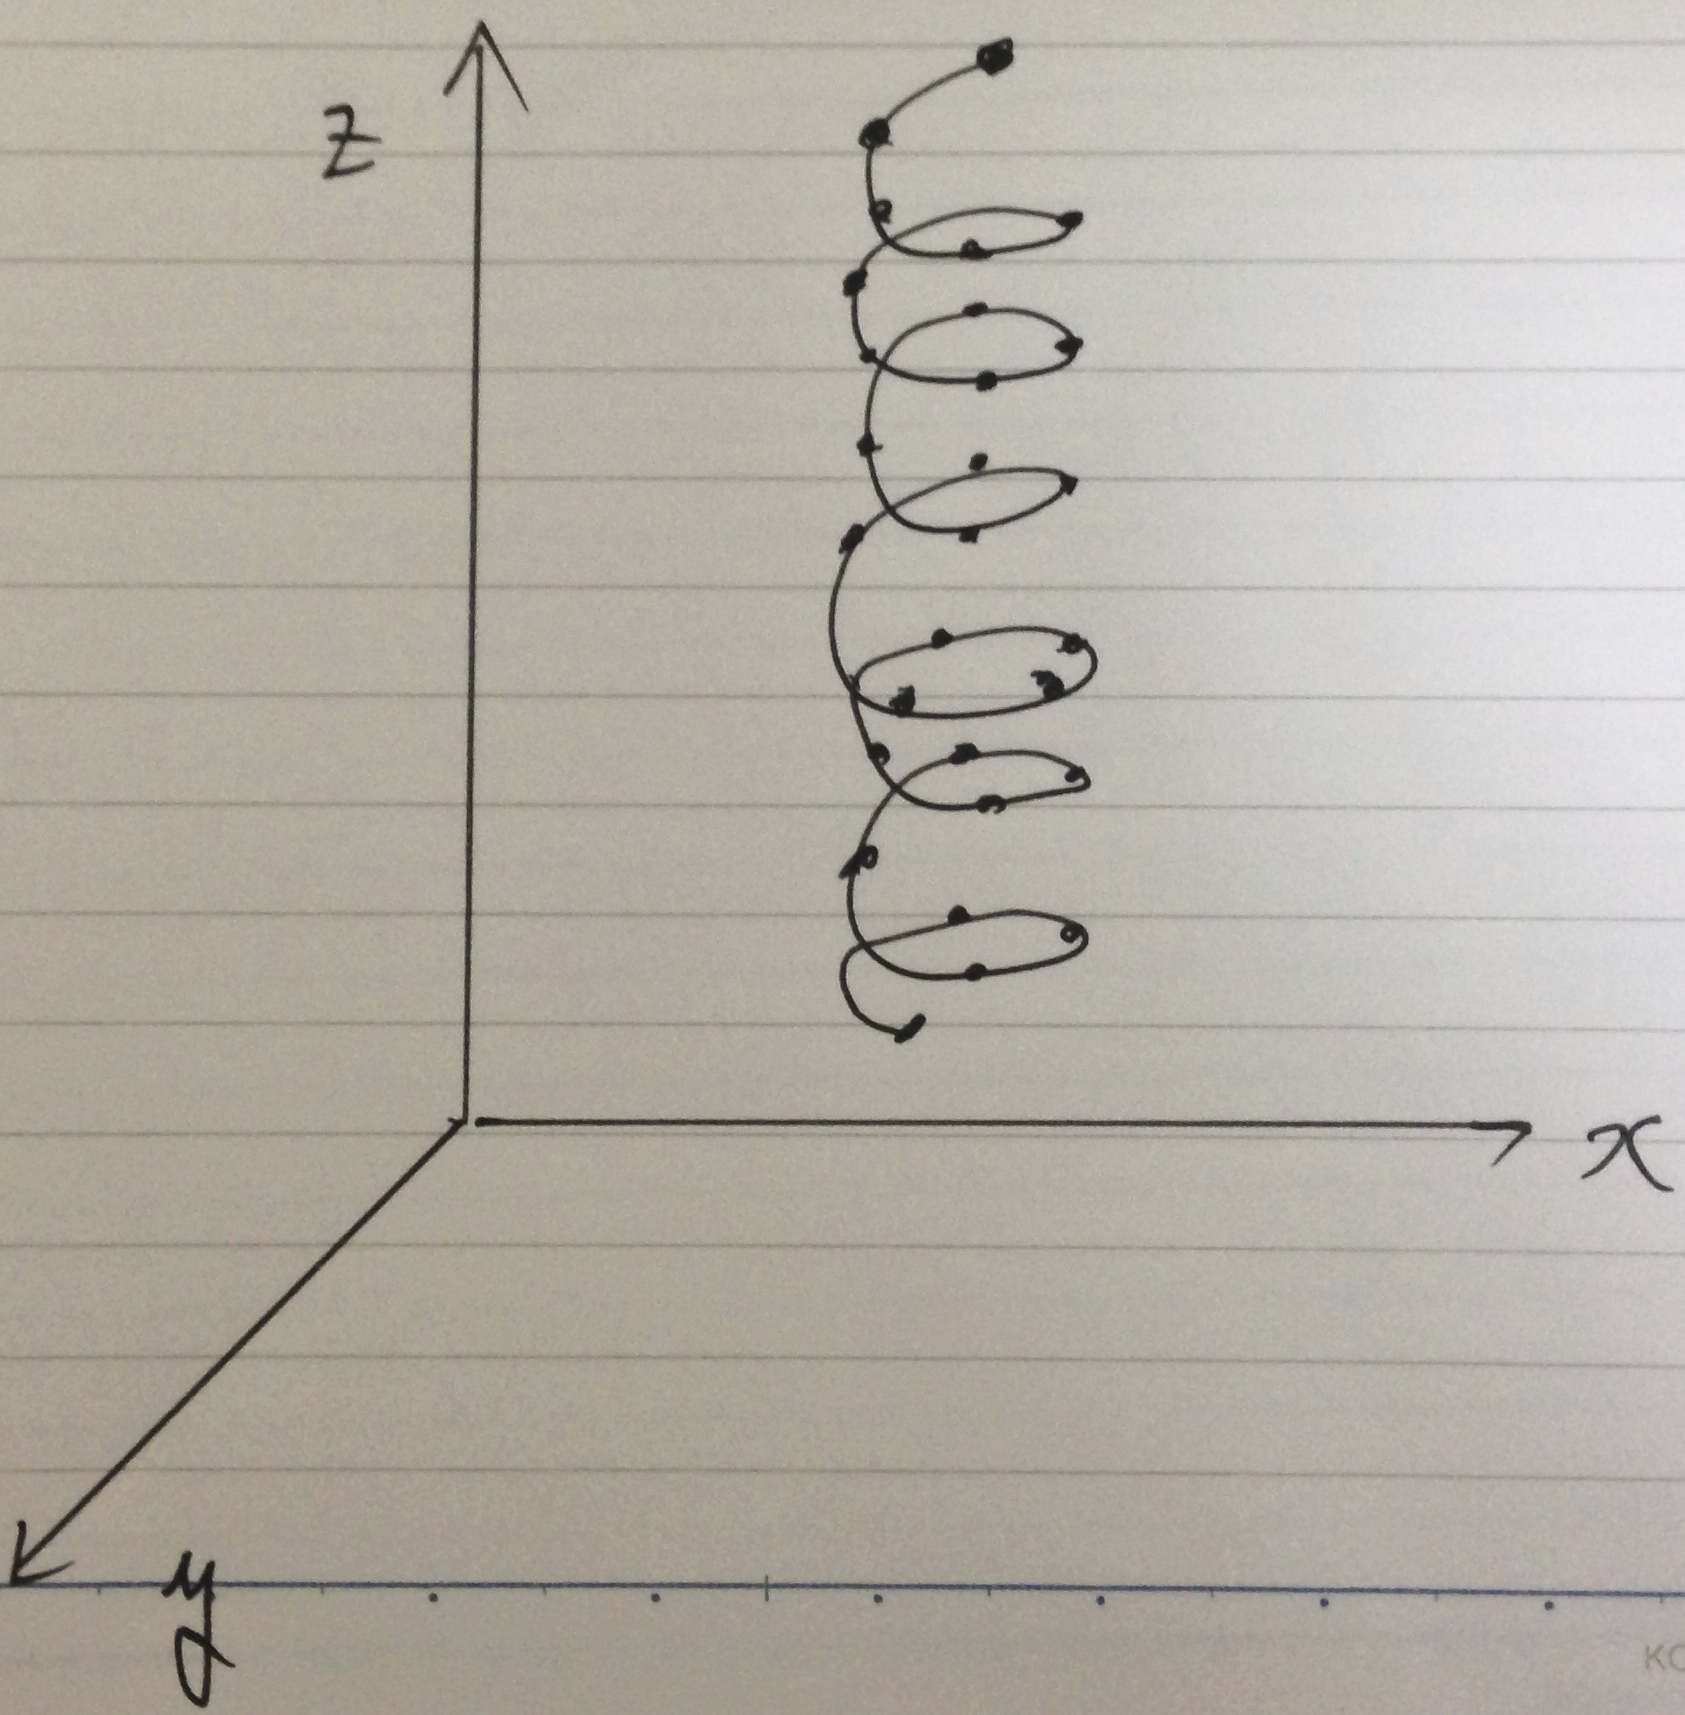 z
x
y
KO